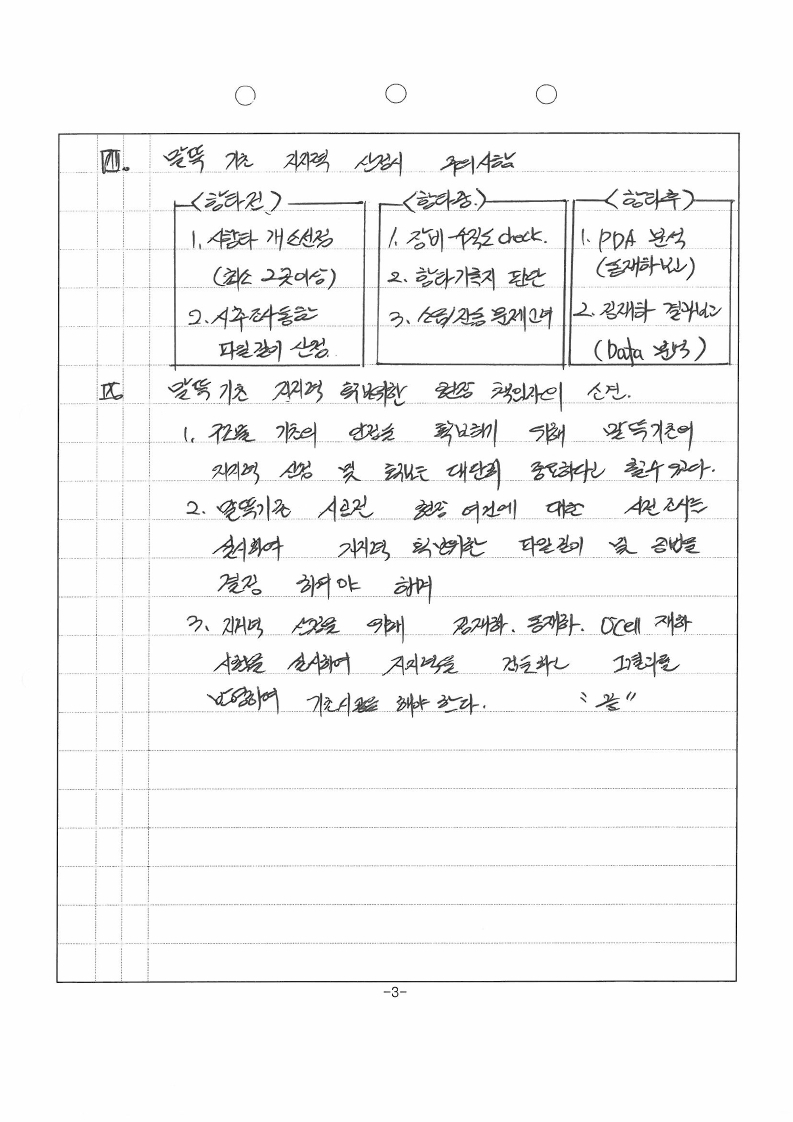 Ⅷ. 말뚝 기초 지지력 산정시 주의사항
<항타전>
1. 시항타 개소선정
(최소 2곳이상)
2. 시추조사등을
파일길이 산정.
<항타중.>
1. 장비 수직도 check.
2. 항타기록지 판단
3. 소음/진동 문제고려
<항타후>
1. PDA 분석
(동재하보고)
2. 정재하 결과보고
(Data 분석)
Ⅸ 말뚝 기초 지지력 확보위한 현장 책임자의 소견.
1. 구조물 기초의 안정을 확보하기 위해 말뚝기초의
지지력 산정 및 확보는 대단히 중요하다고 할수 있다.
2. 말뚝기초 시공전 현장 여건에 대한 사전조사를
실시하여 지지력 확보위한 파일길이 및 공법을
결정 하여야 하며
3. 지지력 산정을 위해 정재하. 동재하. O'Cell 재하
시험을 실시하여 지지력을 검토하고 그결과를
반영하여 기초시공을 해야 한다. "끝"
-3-